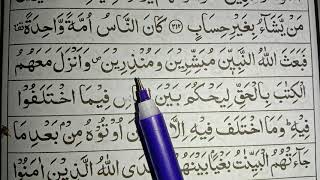 مَنْ يَّشَآءُ بِغَيْرِ حِسَابٍ ﴿۲۱۲﴾ كَانَ النَّاسُ اُمَّةً وَّاحِدَةً
فَبَعَثَ اللّٰهُ النَّبِيّٖنَ مُبَشِّرِيْنَ وَمُنْذِرِيْنَ وَاَنْزَلَ مَعَهُمُ
الْكِتٰبَ بِالْحَقِّ لِيَحْكُمَ بَيْنَ فِيْمَا اخْتَلَفُوْا
فِيْهِ وَمَا اخْتَلَفَ فِيْهِ اُوْتُوْهُ مِنْۢ بَعْدِ مَا
جَآءَتْهُمُ الْبَيِّنٰتُ بَغْيًۢا بَيْنَهُمْ اللّٰهُ الَّذِيْنَ اٰمَنُوْا